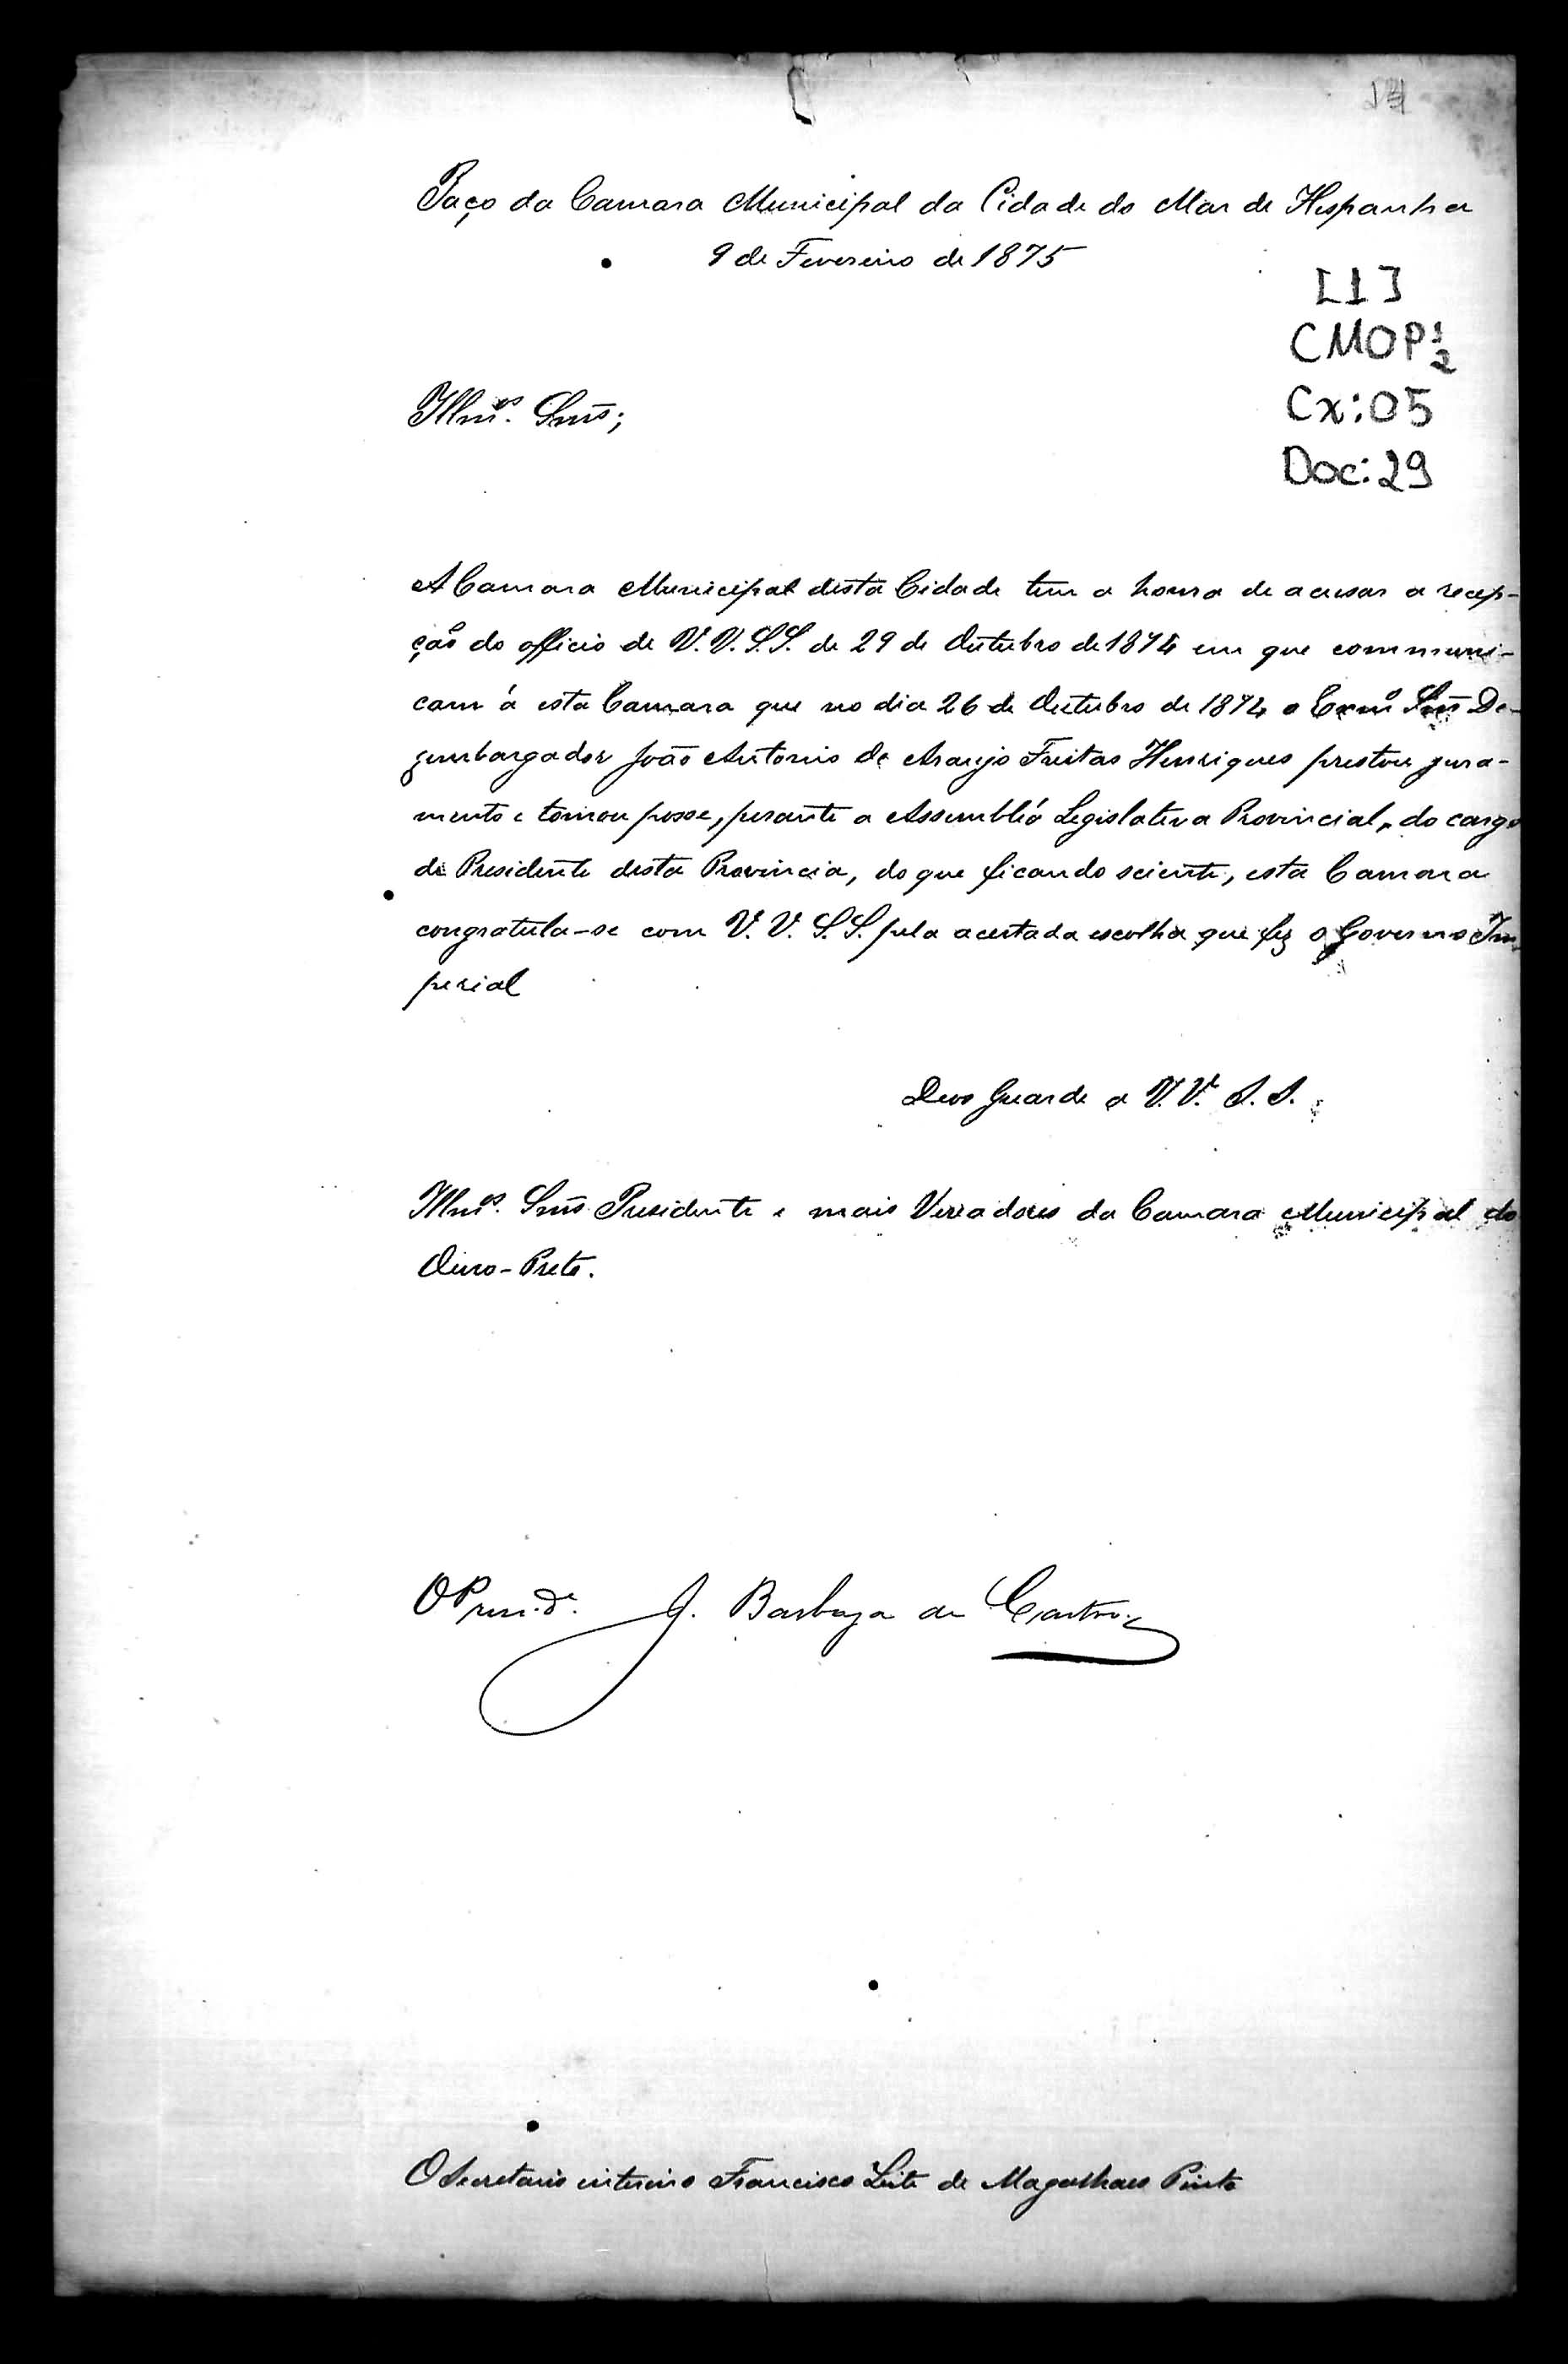 Paço da Camara Municipal da Cidade do Mar de Hespanha
9 de Fevereiro de 1875
[1]
CMOP 1/2
Cx: 05
Doc: 29
Illmos. Snrs;
A Camara Municipal desta Cidade tem a honra de acusar a recep-
ção do officio de V. V. S.S. de 29 de Outubro de 1874 em que communi-
cam á esta Camara que no dia 26 de Outubro de 1874 o Exmo Snr De-
zembargador João Antonio de Araujo Freitas Henriques prestou jura-
mento e tomou posse, perante a Assembléa Legislativa Provincial, do cargo
de Presidente desta Provincia, do que ficando sciente, esta Camara
congratula-se com V. V. S.S. pela acertada escolha que fez o Governo Im
perial
Deos Guarde a V. V. S. S.
Illmos. Snrs Presidente e mais Vereadores da Camara Municipal do
Ouro-Preto.
O Presid.e J. Barboza de Castro
O Secretario interino Francisco Leite de Magalhaes Pinto